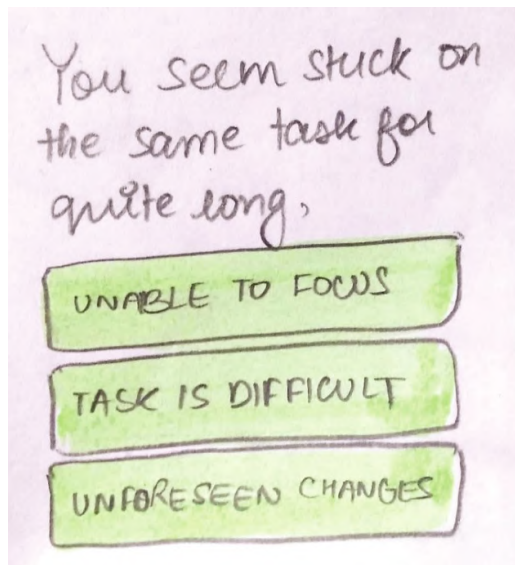 You seem stuck on
the same task for
quite long,
UNABLE TO FOCUS
TASK IS DIFFICULT
UNFORESEEN CHANGES